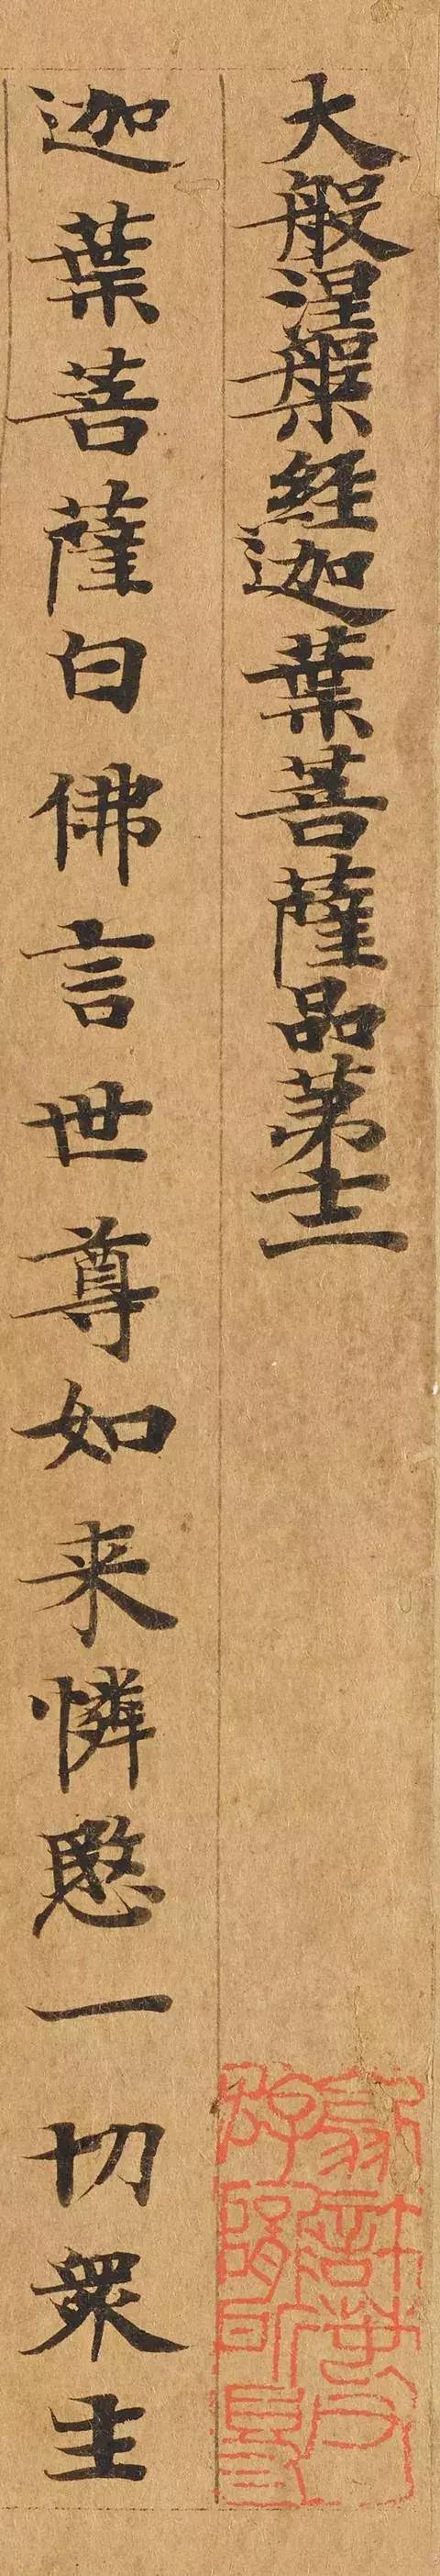 大般涅槃経迦葉菩薩品苐十二
迦葉菩薩白佛言世尊如来憐愍一切衆生